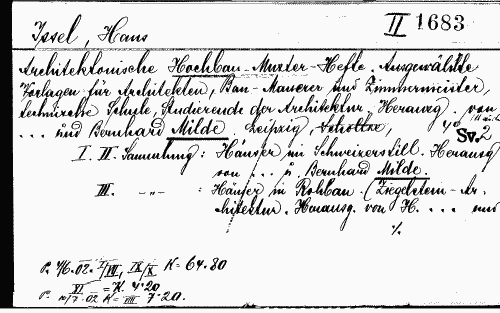 Issel, Hans II 1683
Architektonische Hochbau-Muster-Hefte. Ausgewählte
Vorlagen für Architekten, Bau-Maurer und Zimmermeister,
technische Schule, Studierende der Architektur. Herausg. von
... und Bernhard Milde. Leipzig, Scholtze, 4° Sv. 2
I. II. Sammlung: Häuser im Schweizerstill. Herausg
von ... u. Bernhard Milde.
III. -"- : Häuser in Rohbau. (Ziegelstein-Ar-
chitektur. Herausg. von H. ... und
%.
P. 4/6.02. I/III, IX/X K= 64.80
VI = K. 4.20
P. 10/7.02 K= VIII 7.20.